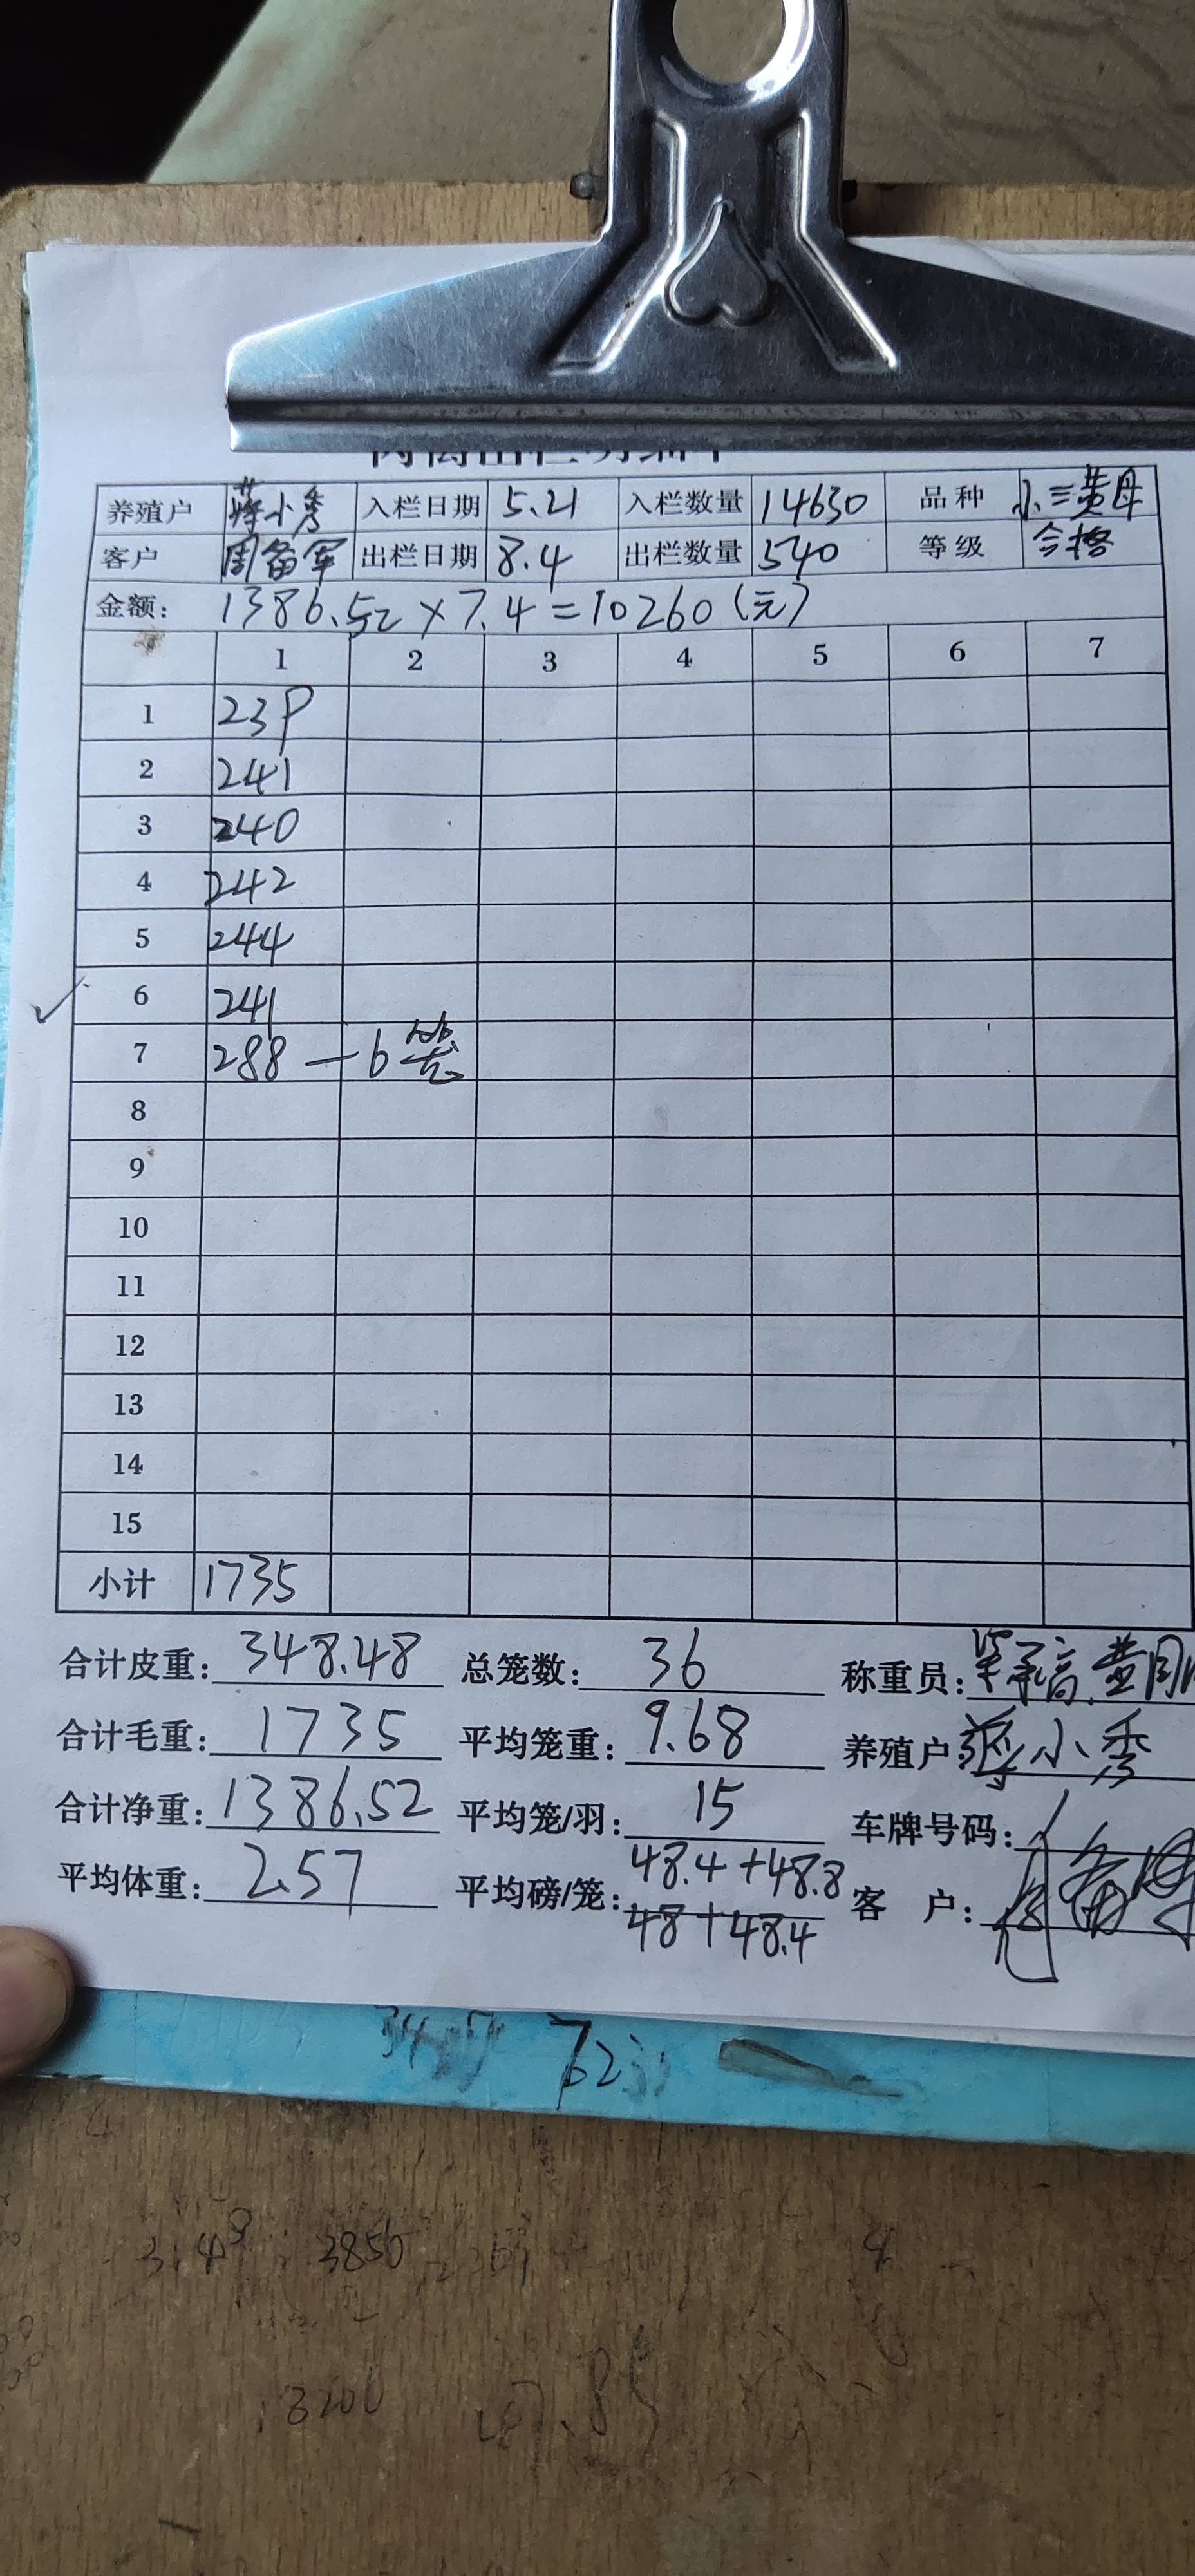 养殖户 蒋小秀 入栏日期 5.21 入栏数量 14630 品种 小三黄母
客户 周备军 出栏日期 8.4 出栏数量 540 等级 合格
金额: 1386.52×7.4=10260(元)
1 2 3 4 5 6 7
1 239
2 241
3 240
4 242
5 244
6 241
7 288 — 6笼
8
9
10
11
12
13
14
15
小计 1735
合计皮重: 348.48 总笼数: 36 称重员:
合计毛重: 1735 平均笼重: 9.68 养殖户: 蒋小秀
合计净重: 1386.52 平均笼/羽: 15 车牌号码:
平均体重: 2.57 平均磅/笼: 48.4+48.8 客 户:
48+48.4
762
3850
3200